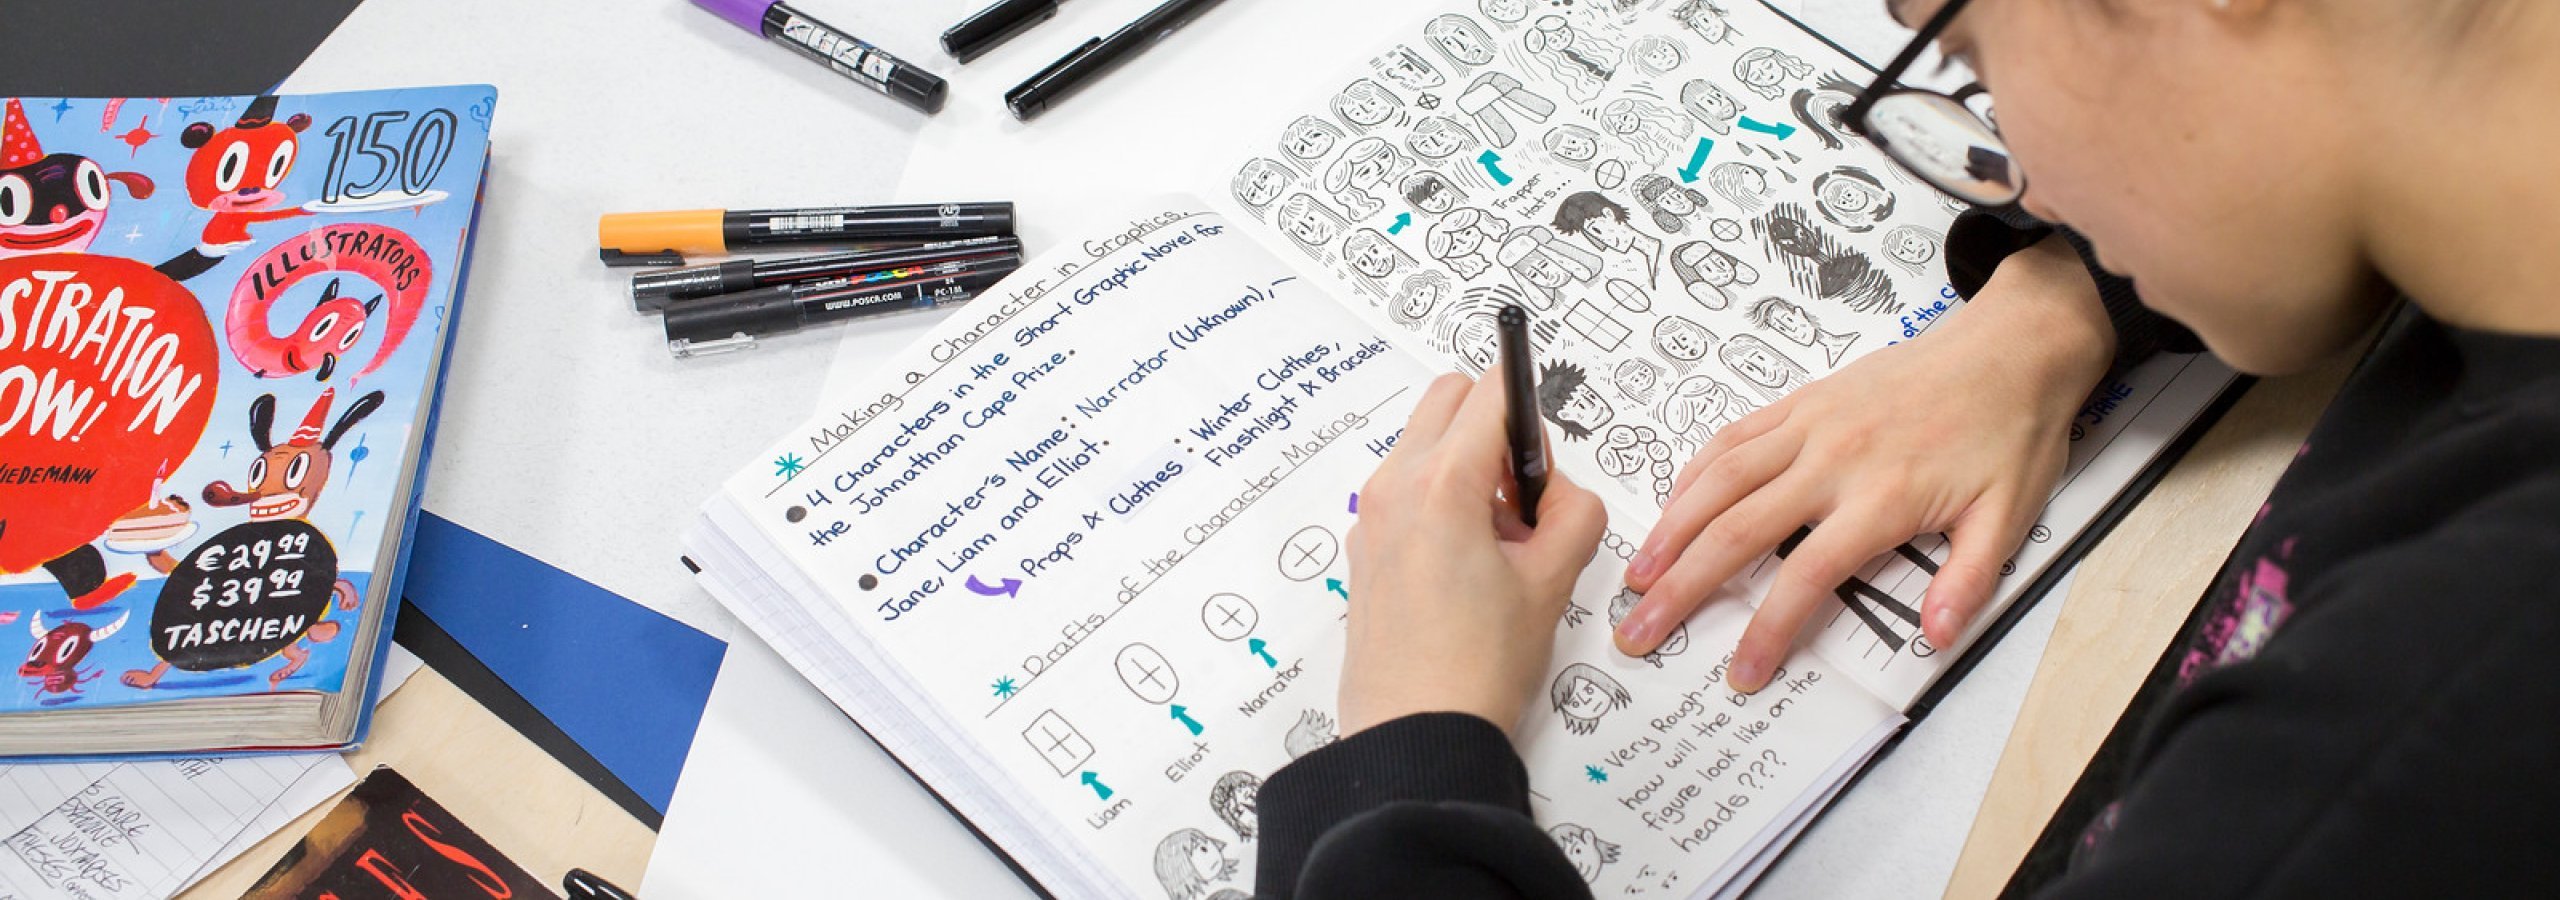 150
ILLUSTRATORS
STRATION
OW!
WIEDEMANN
€ 29 99
$ 39 99
TASCHEN
WWW.POSCA.COM
PC-1M
Making a Character in Graphics.
4 Characters in the Short Graphic Novel for
the Johnathan Cape Prize.
Character's Name: Narrator (Unknown),
Jane, Liam and Elliot.
Props & Clothes: Winter Clothes,
Flashlight & Bracelet
Drafts of the Character Making
Liam
Elliot
Narrator
Trapper
Hats...
of the C
JANE
* Very Rough-uns
how will the bo
figure look like on the
heads???